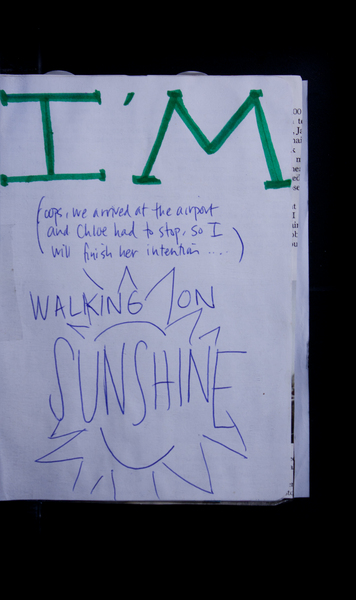 I'M
(oops, we arrived at the airport
and Chloe had to stop, so I
will finish her intention ....)
WALKING ON
SUNSHINE